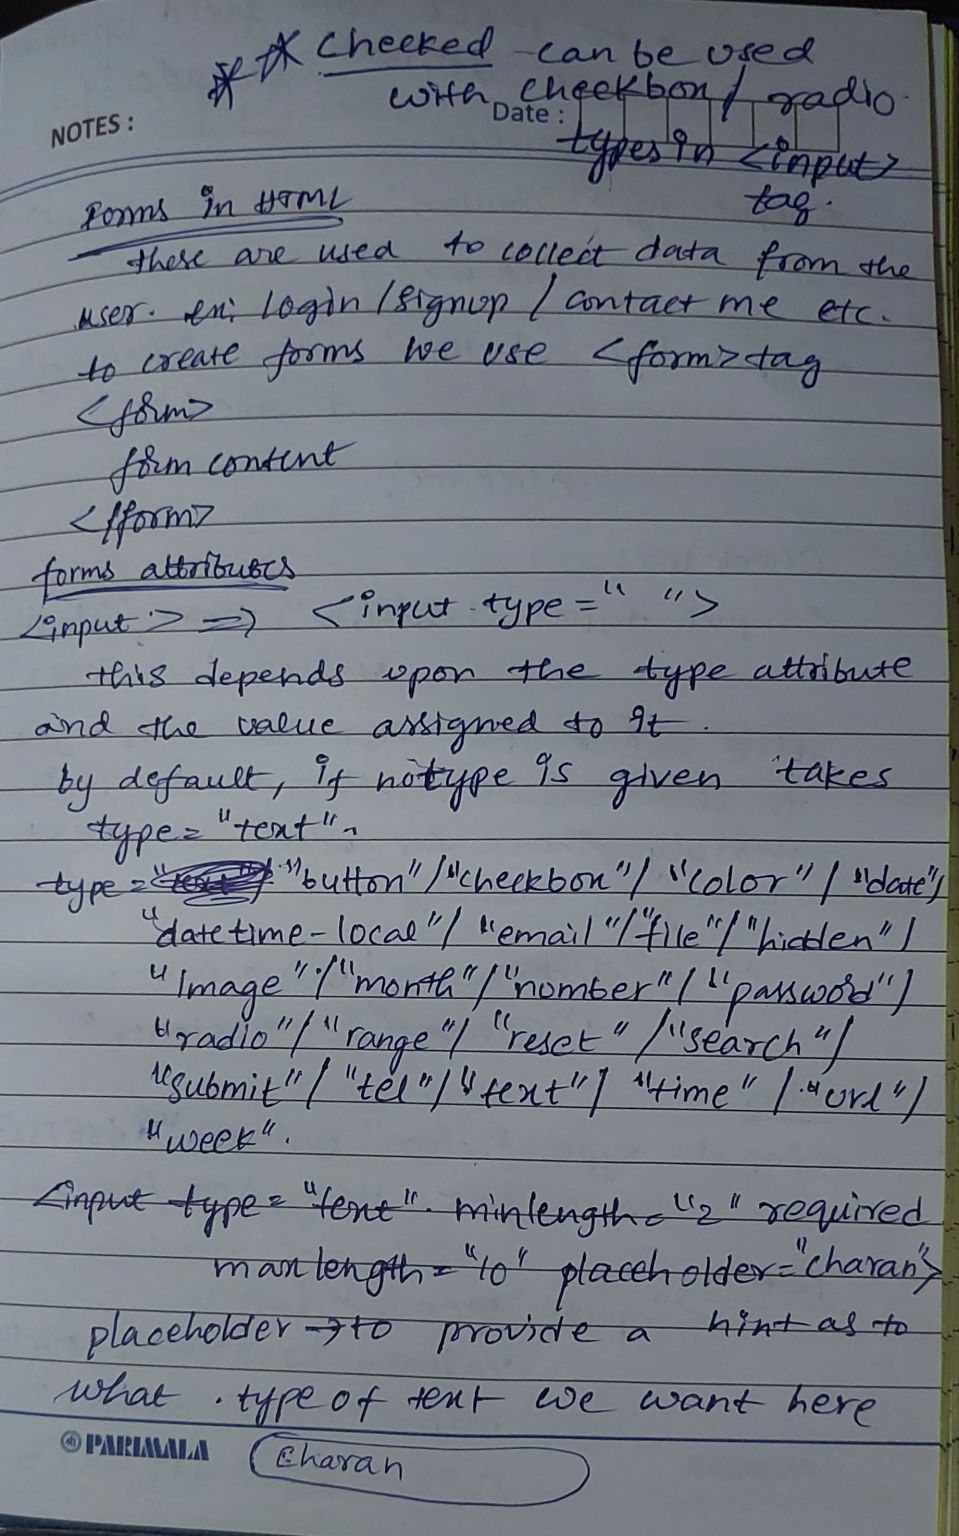 ** Checked can be used
with checkbox / radio
NOTES :
Date :
types in <input>
tag.
Forms in HTML
these are used to collect data from the
user. ex: login / signup / contact me etc.
to create forms we use <form> tag
<form>
form content
</form>
forms attributes
<input> => <input type=" ">
this depends upon the type attribute
and the value assigned to it.
by default, if no type is given takes
type = "text".
type = "button" / "checkbox" / "color" / "date" /
"datetime-local" / "email" / "file" / "hidden" /
"Image" / "month" / "number" / "password" /
"radio" / "range" / "reset" / "search" /
"submit" / "tel" / "text" / "time" / "url" /
"week".
<input type = "text" minlength = "2" required
maxlength = "10" placeholder = "charan">
placeholder → to provide a hint as to
what type of text we want here
PARIMALA
Charan